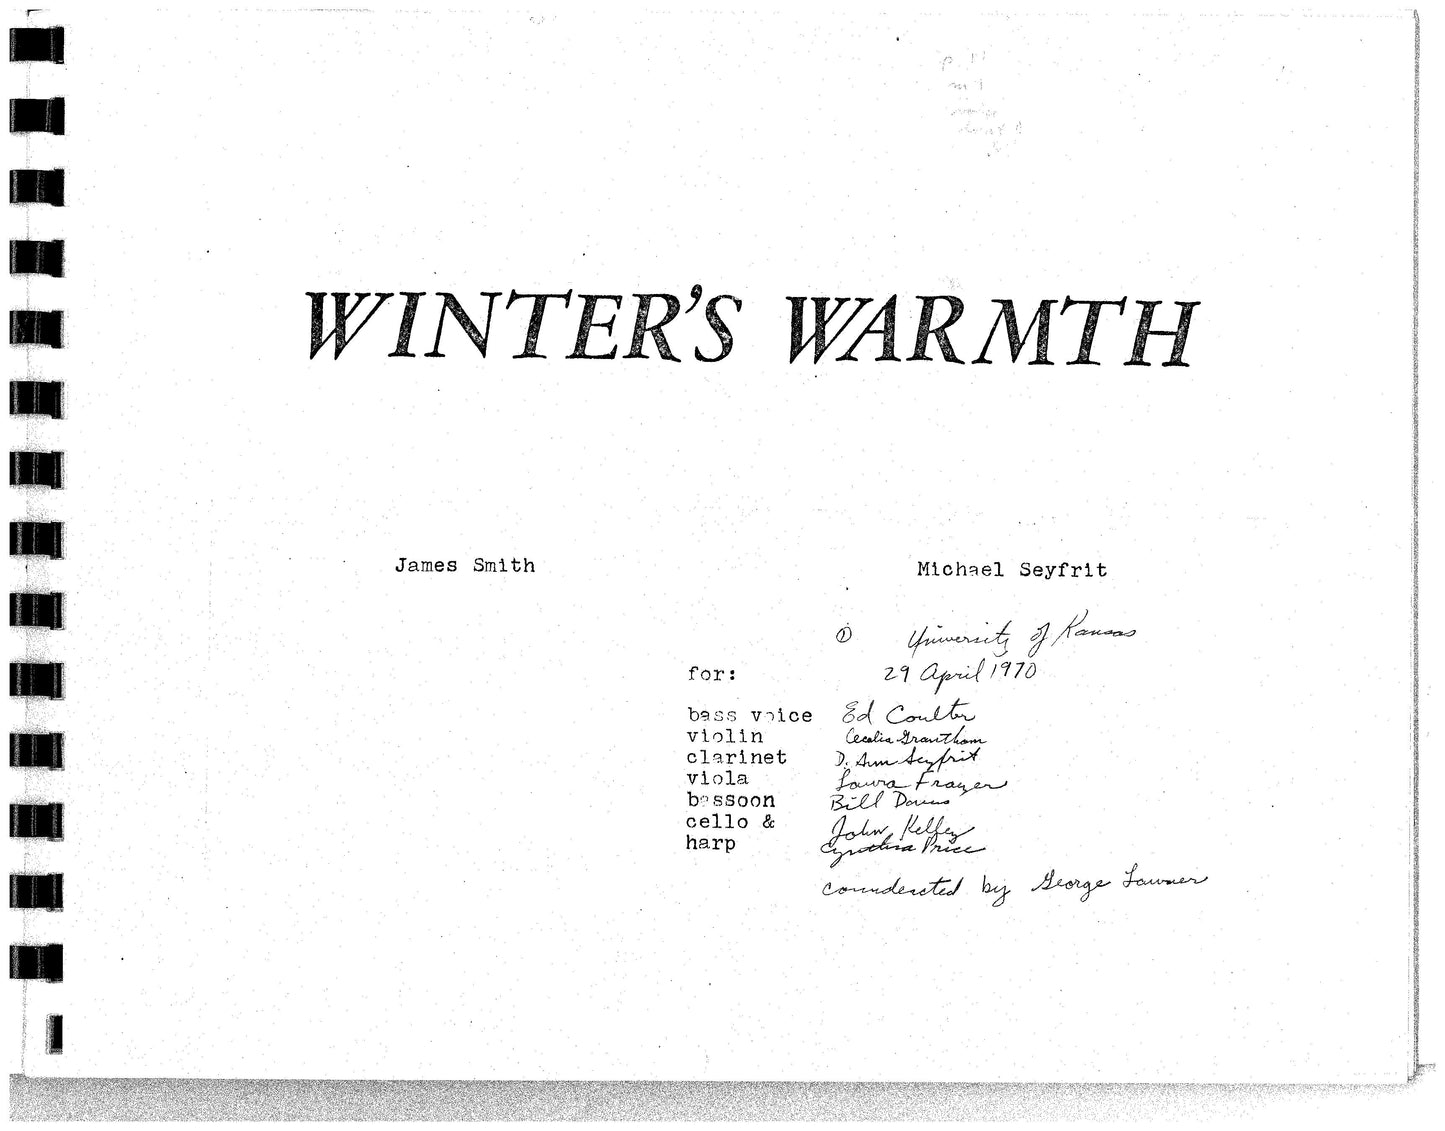 WINTER'S WARMTH
James Smith
Michael Seyfrit
① University of Kansas
for: 29 April 1970
bass voice Ed Coulter
violin Cecelia Grantham
clarinet D. Ann Seyfrit
viola Laura Frazer
bassoon Bill
cello & John Kelley
harp Cynthia Price
counducted by George Lawner